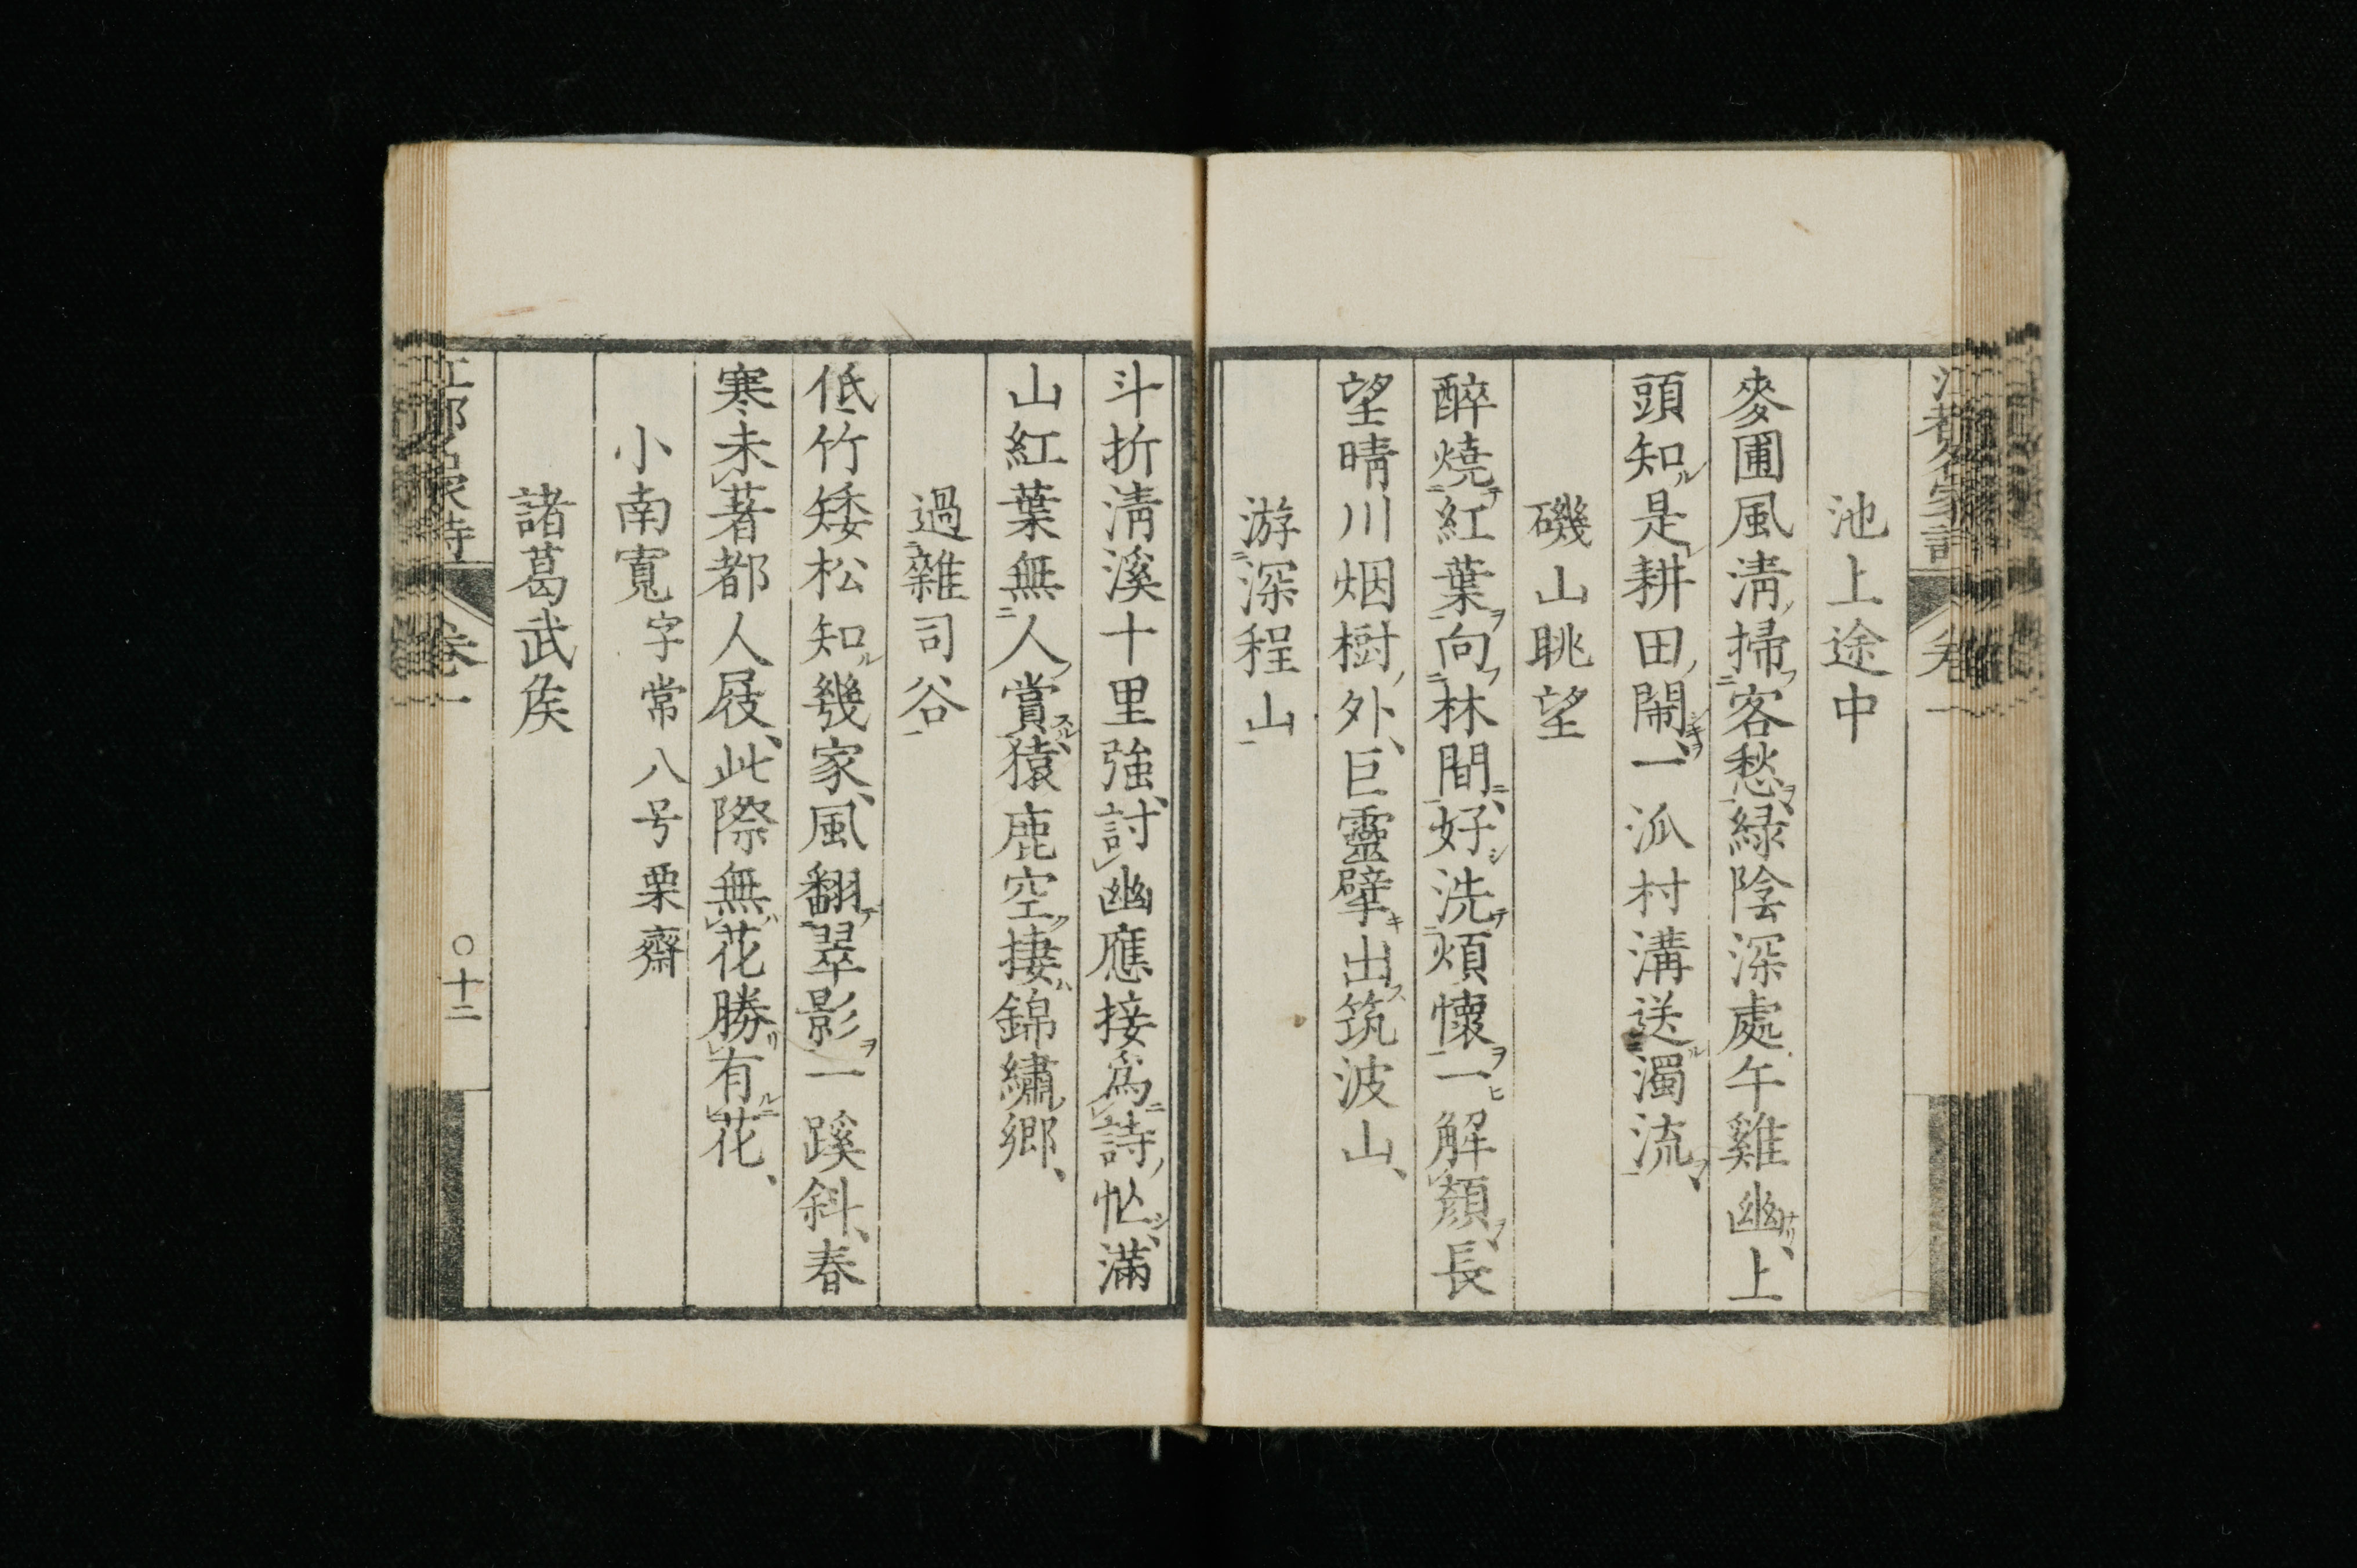 江都名家詩 卷一
池上途中
麥圃風淸掃客愁綠陰深處午雞幽上
頭知是耕田鬧一派村溝送濁流
磯山眺望
醉燒紅葉向林間好洗煩懷一解顏長
望晴川烟樹外巨靈擘出筑波山
游深程山
斗折淸溪十里強討幽應接爲詩忙滿
山紅葉無人賞猿鹿空捿錦繡鄉
過雜司谷
低竹矮松知幾家風翻翠影一蹊斜春
寒未著都人屐此際無花勝有花
小南寬字常八号栗齋
諸葛武侯
江都名家詩 卷一 〇十二